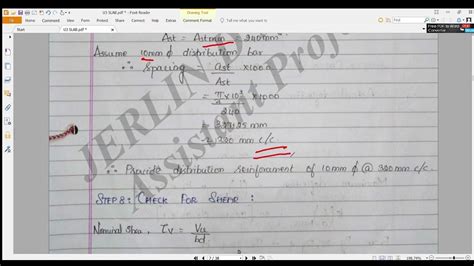 U3 SLAB.pdf * - Foxit Reader
Drawing Tool
File Home Comment View Form Protect Share Help Extras Comment Format
Start
U3 SLAB.pdf *
Ast = Astmin = 240mm²
Assume 10mm ϕ distribution bar
∴ spacing = ast/Ast × 1000
= π/4 × 10² × 1000
240
= 327.25 mm
≈ 320 mm c/c
∴ Provide distribution reinforcement of 10mm ϕ @ 320 mm c/c.
STEP 8: CHECK FOR SHEAR:
Nominal Shear, τv = Vu/bd
JERLIN
Assistant Prof